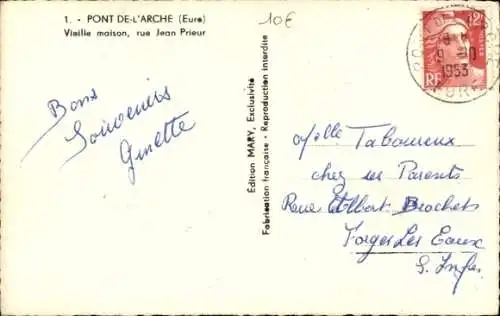 1. - PONT DE-L'ARCHE (Eure)
Vieille maison, rue Jean Prieur
10€
12F
RF
1953
EURE
Bons
Souvenirs
Ginette
Edition MARY, Exclusivité
Fabrication française - Reproduction interdite
Melle Taboureux
chez ses Parents
Rue Albert Bochets
Forges Les Eaux
S. Infre